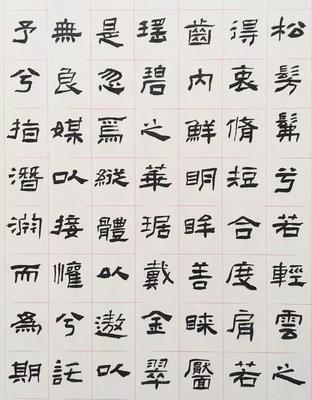 松髣髴兮若輕雲之
得衷脩短合度肩若
齒内鮮明眸善睞靨
瑤碧之華琚戴金翠
是忽焉縱體以遨以
無良媒以接懽兮託
予兮指潛淵而為期